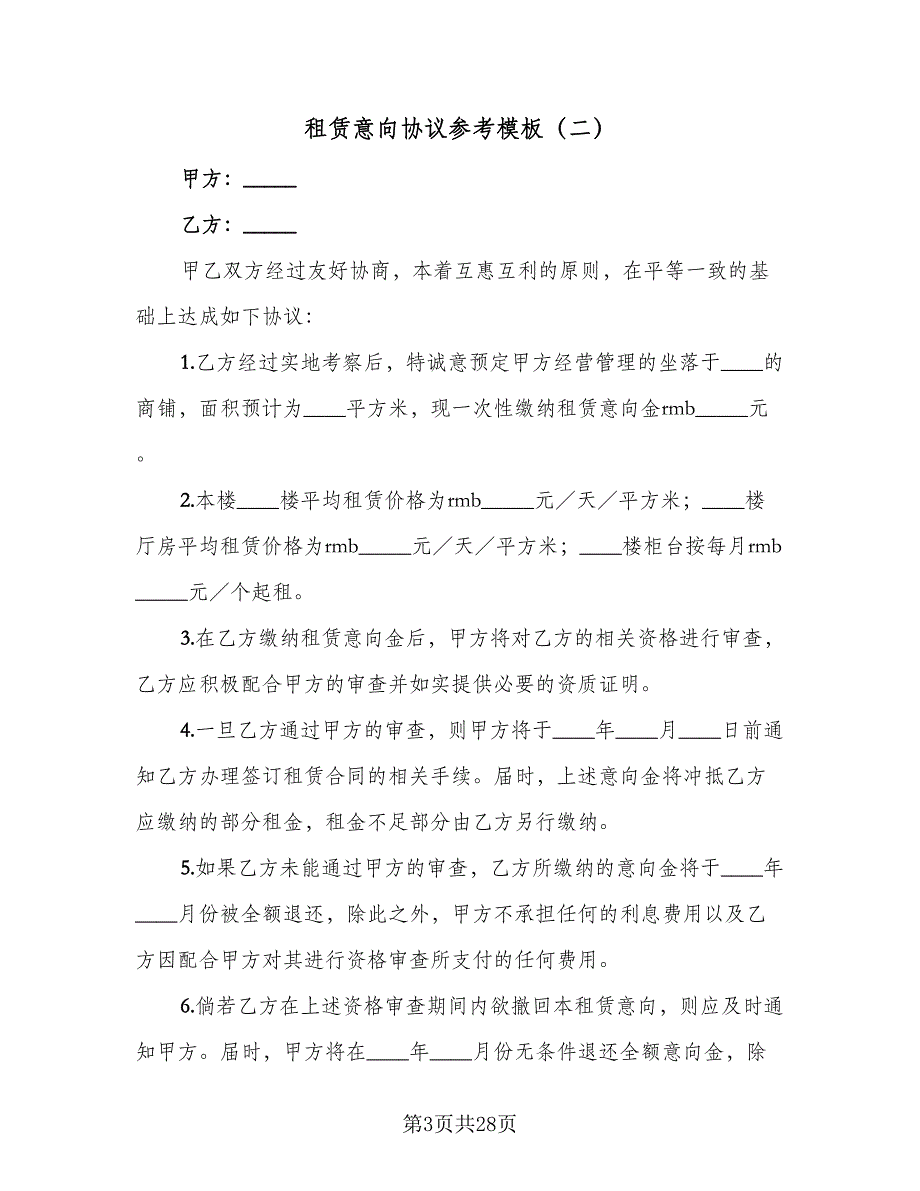 租赁意向协议参考模板（二）
甲方：_____
乙方：_____
甲乙双方经过友好协商，本着互惠互利的原则，在平等一致的基
础上达成如下协议：
1.乙方经过实地考察后，特诚意预定甲方经营管理的坐落于____的
商铺，面积预计为____平方米，现一次性缴纳租赁意向金rmb_____元
。
2.本楼____楼平均租赁价格为rmb_____元／天／平方米；____楼
厅房平均租赁价格为rmb_____元／天／平方米；____楼柜台按每月rmb
_____元／个起租。
3.在乙方缴纳租赁意向金后，甲方将对乙方的相关资格进行审查，
乙方应积极配合甲方的审查并如实提供必要的资质证明。
4.一旦乙方通过甲方的审查，则甲方将于____年____月____日前通
知乙方办理签订租赁合同的相关手续。届时，上述意向金将冲抵乙方
应缴纳的部分租金，租金不足部分由乙方另行缴纳。
5.如果乙方未能通过甲方的审查，乙方所缴纳的意向金将于____年
____月份被全额退还，除此之外，甲方不承担任何的利息费用以及乙
方因配合甲方对其进行资格审查所支付的任何费用。
6.倘若乙方在上述资格审查期间内欲撤回本租赁意向，则应及时通
知甲方。届时，甲方将在____年____月份无条件退还全额意向金，除
第3页共28页